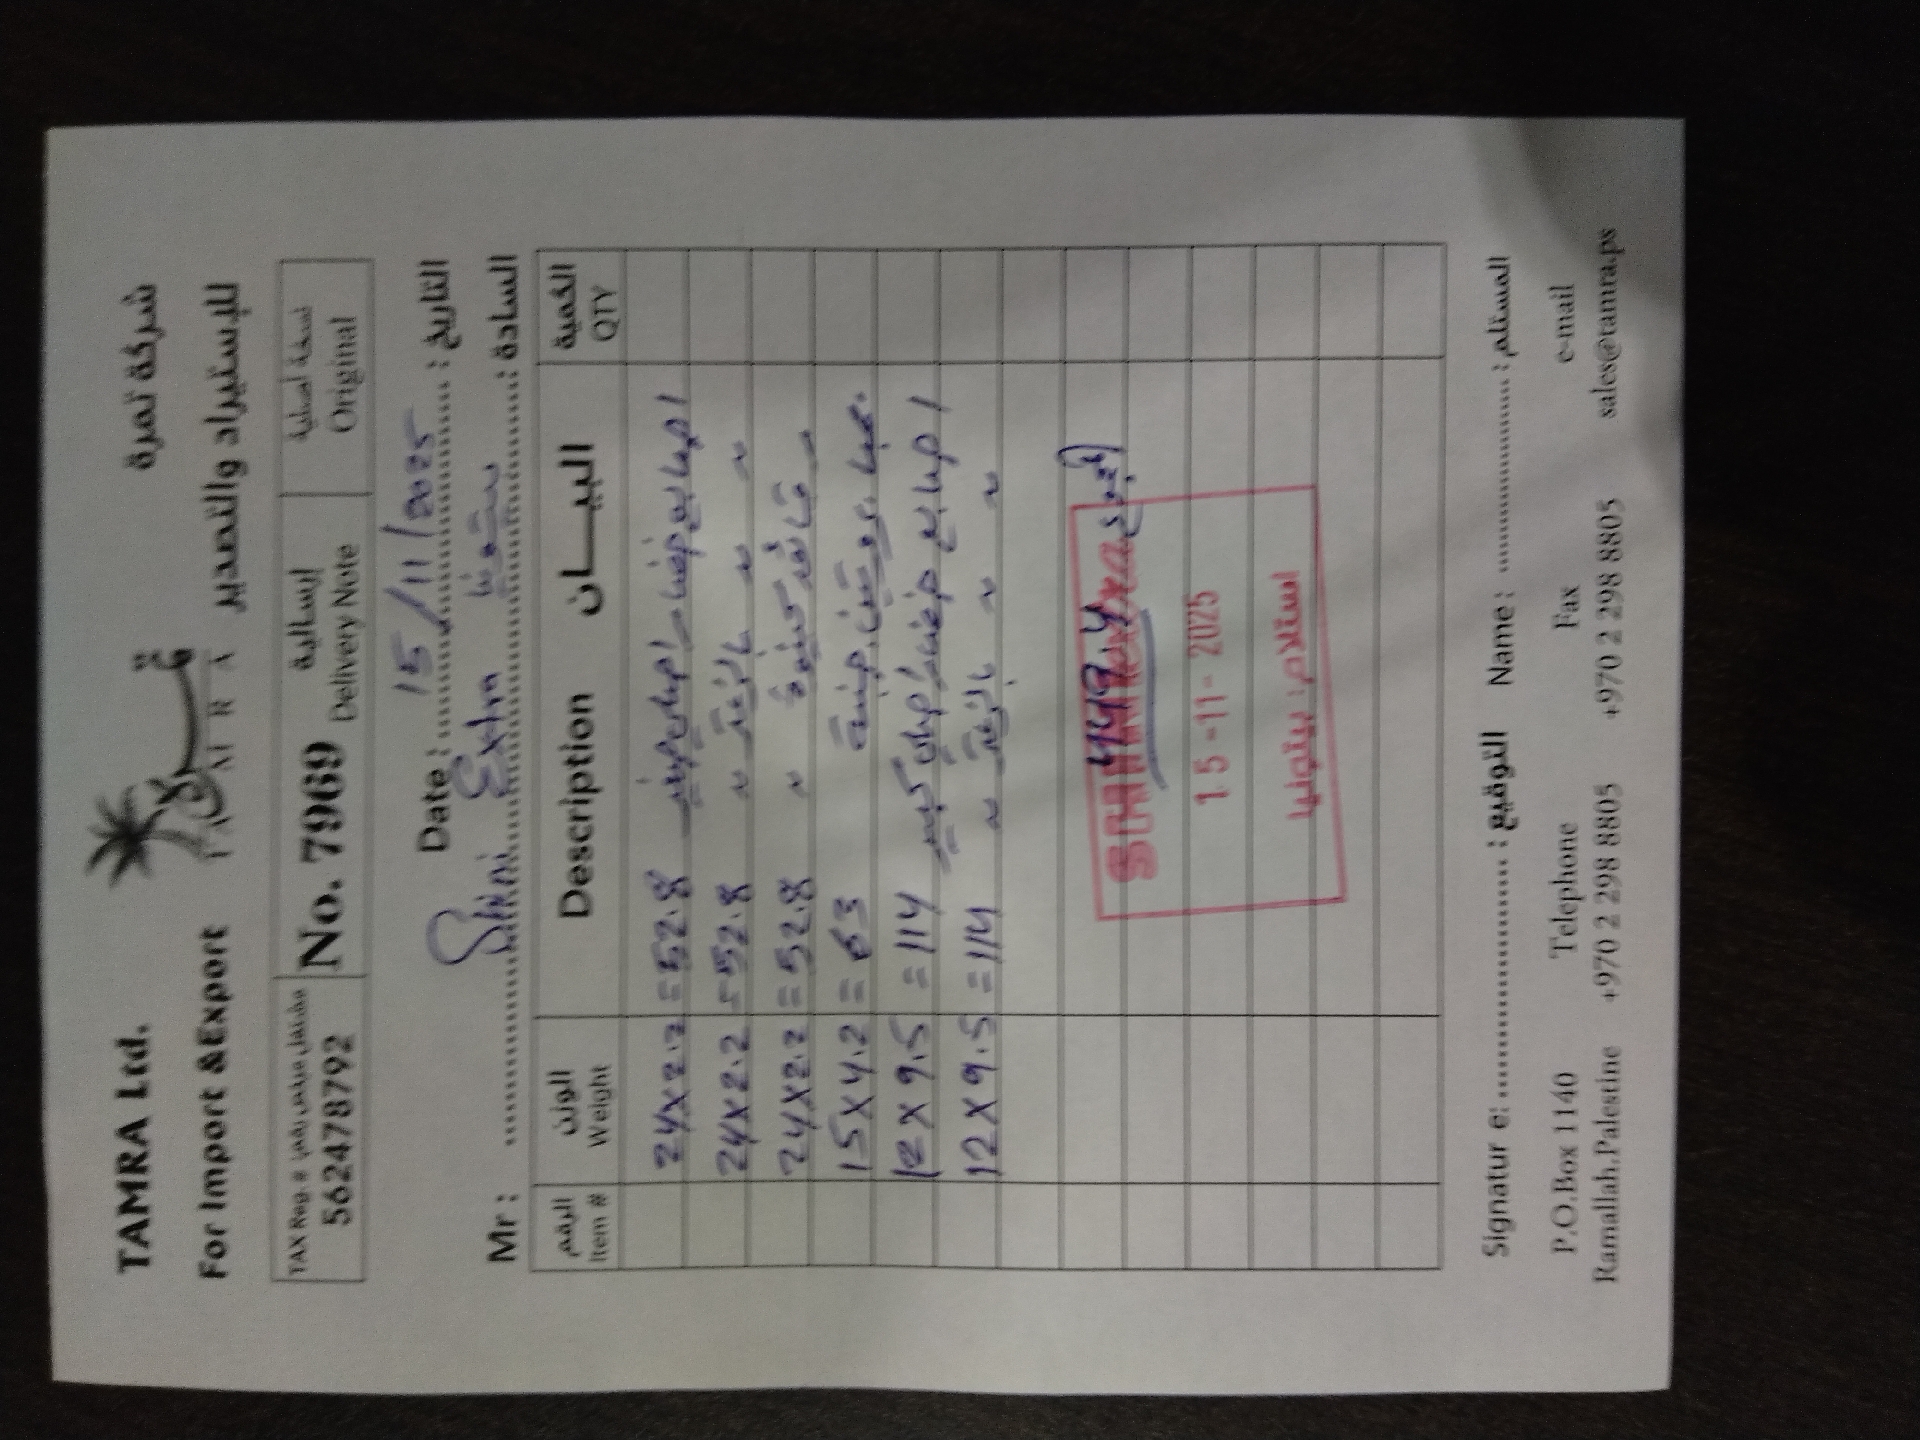 TAMRA Ltd. شركة تمرة
For Import &Export للإستيراد والتصدير
تمرة
TAMRA
TAX Reg.# مشتغل مرخص رقم
562478792
No. 7969
إرسالية
Delivery Note
نسخة أصلية
Original
Date: 15/11/2025 التاريخ:
Mr: Shini Extra بيتونيا السادة:
الرقم الوزن البيـــان الكمية
Item # Weight Description QTY
24x2.2 =52.8
24x2.2 =52.8 ~ بالزعتر ~ ~ ~
24x2.2 =52.8 ~
15x4.2 = 63
12x9.5 =114 كبير
12x9.5 =114 ~ بالزعتر ~ ~ ~
449.4 المجموع
15-11-2025
استلام: بيتونيا
Signatur e: التوقيع: Name: المستلم:
P.O.Box 1140 Telephone Fax e-mail
Ramallah,Palestine +970 2 298 8805 +970 2 298 8805 sales@tamra.ps